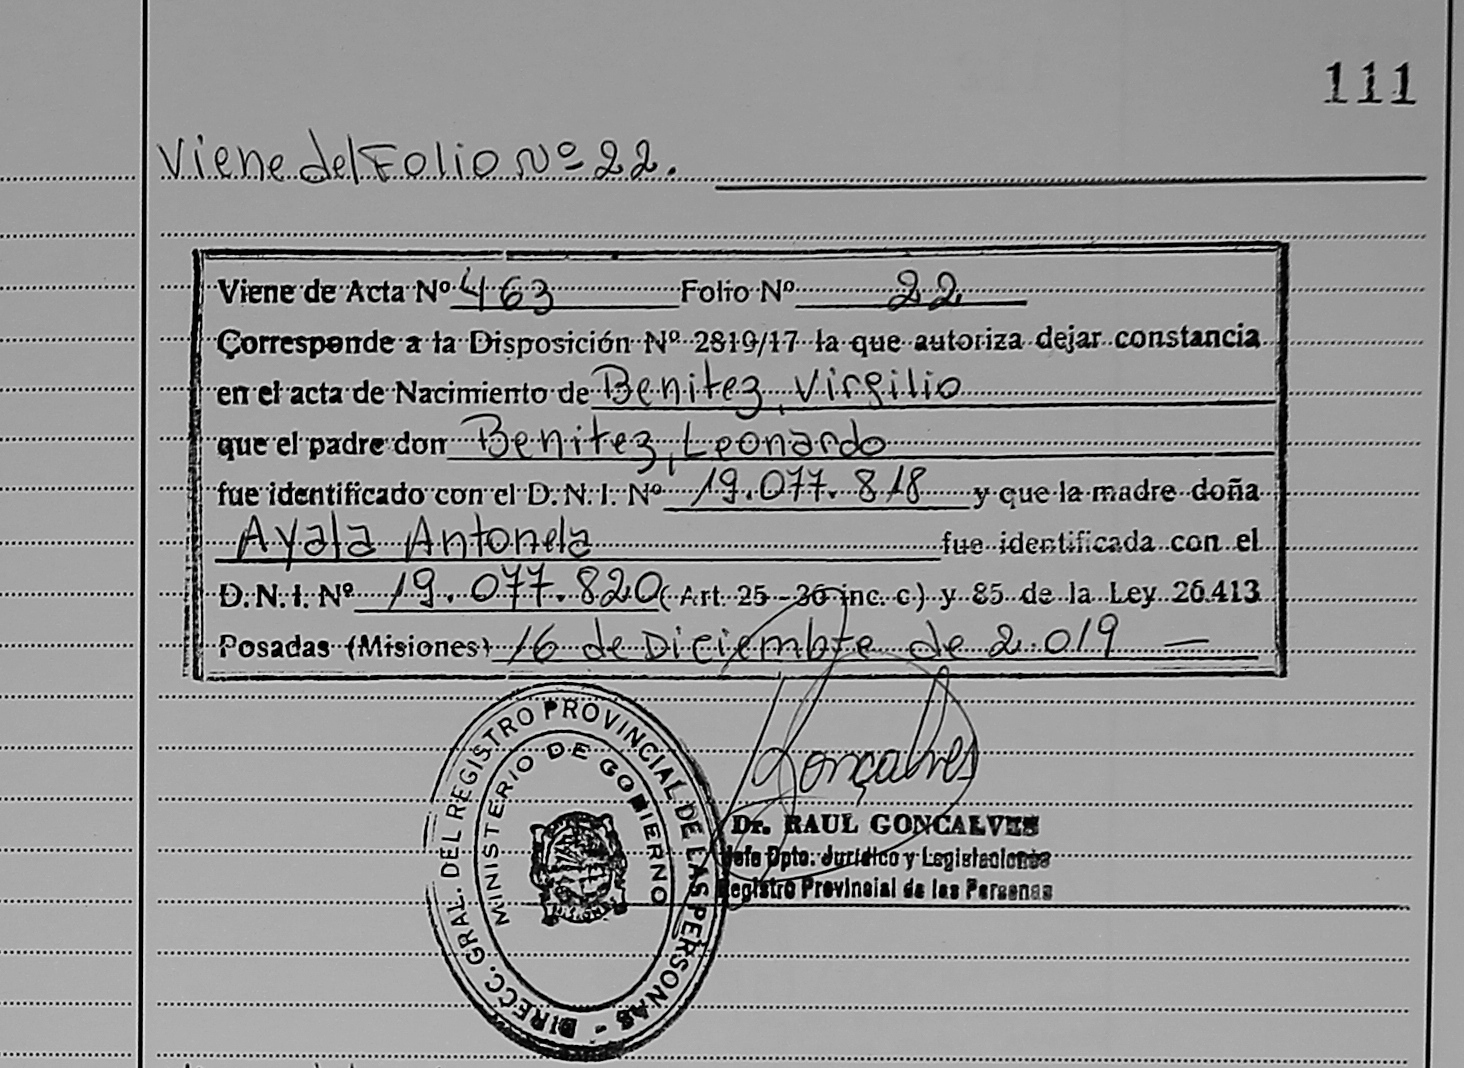 111
Viene del Folio Nº 22.
Viene de Acta Nº 463 Folio Nº 22
Corresponde a la Disposición Nº 2819/17 la que autoriza dejar constancia
en el acta de Nacimiento de Benitez, Virgilio
que el padre don Benitez, Leonardo
fue identificado con el D.N.I. Nº 19.077.818 y que la madre doña
Ayala Antonela fue identificada con el
D.N.I. Nº 19.077.820 (Art. 25 - 36 inc. c) y 85 de la Ley 26.413
Posadas (Misiones) 16 de Diciembre de 2.019 —
DIRECC. GRAL. DEL REGISTRO PROVINCIAL DE LAS PERSONAS -
MINISTERIO DE GOBIERNO
Gonçalves
Dr. RAUL GONCALVES
Jefe Dpto. Jurídico y Legislaciones
Registro Provincial de las Personas